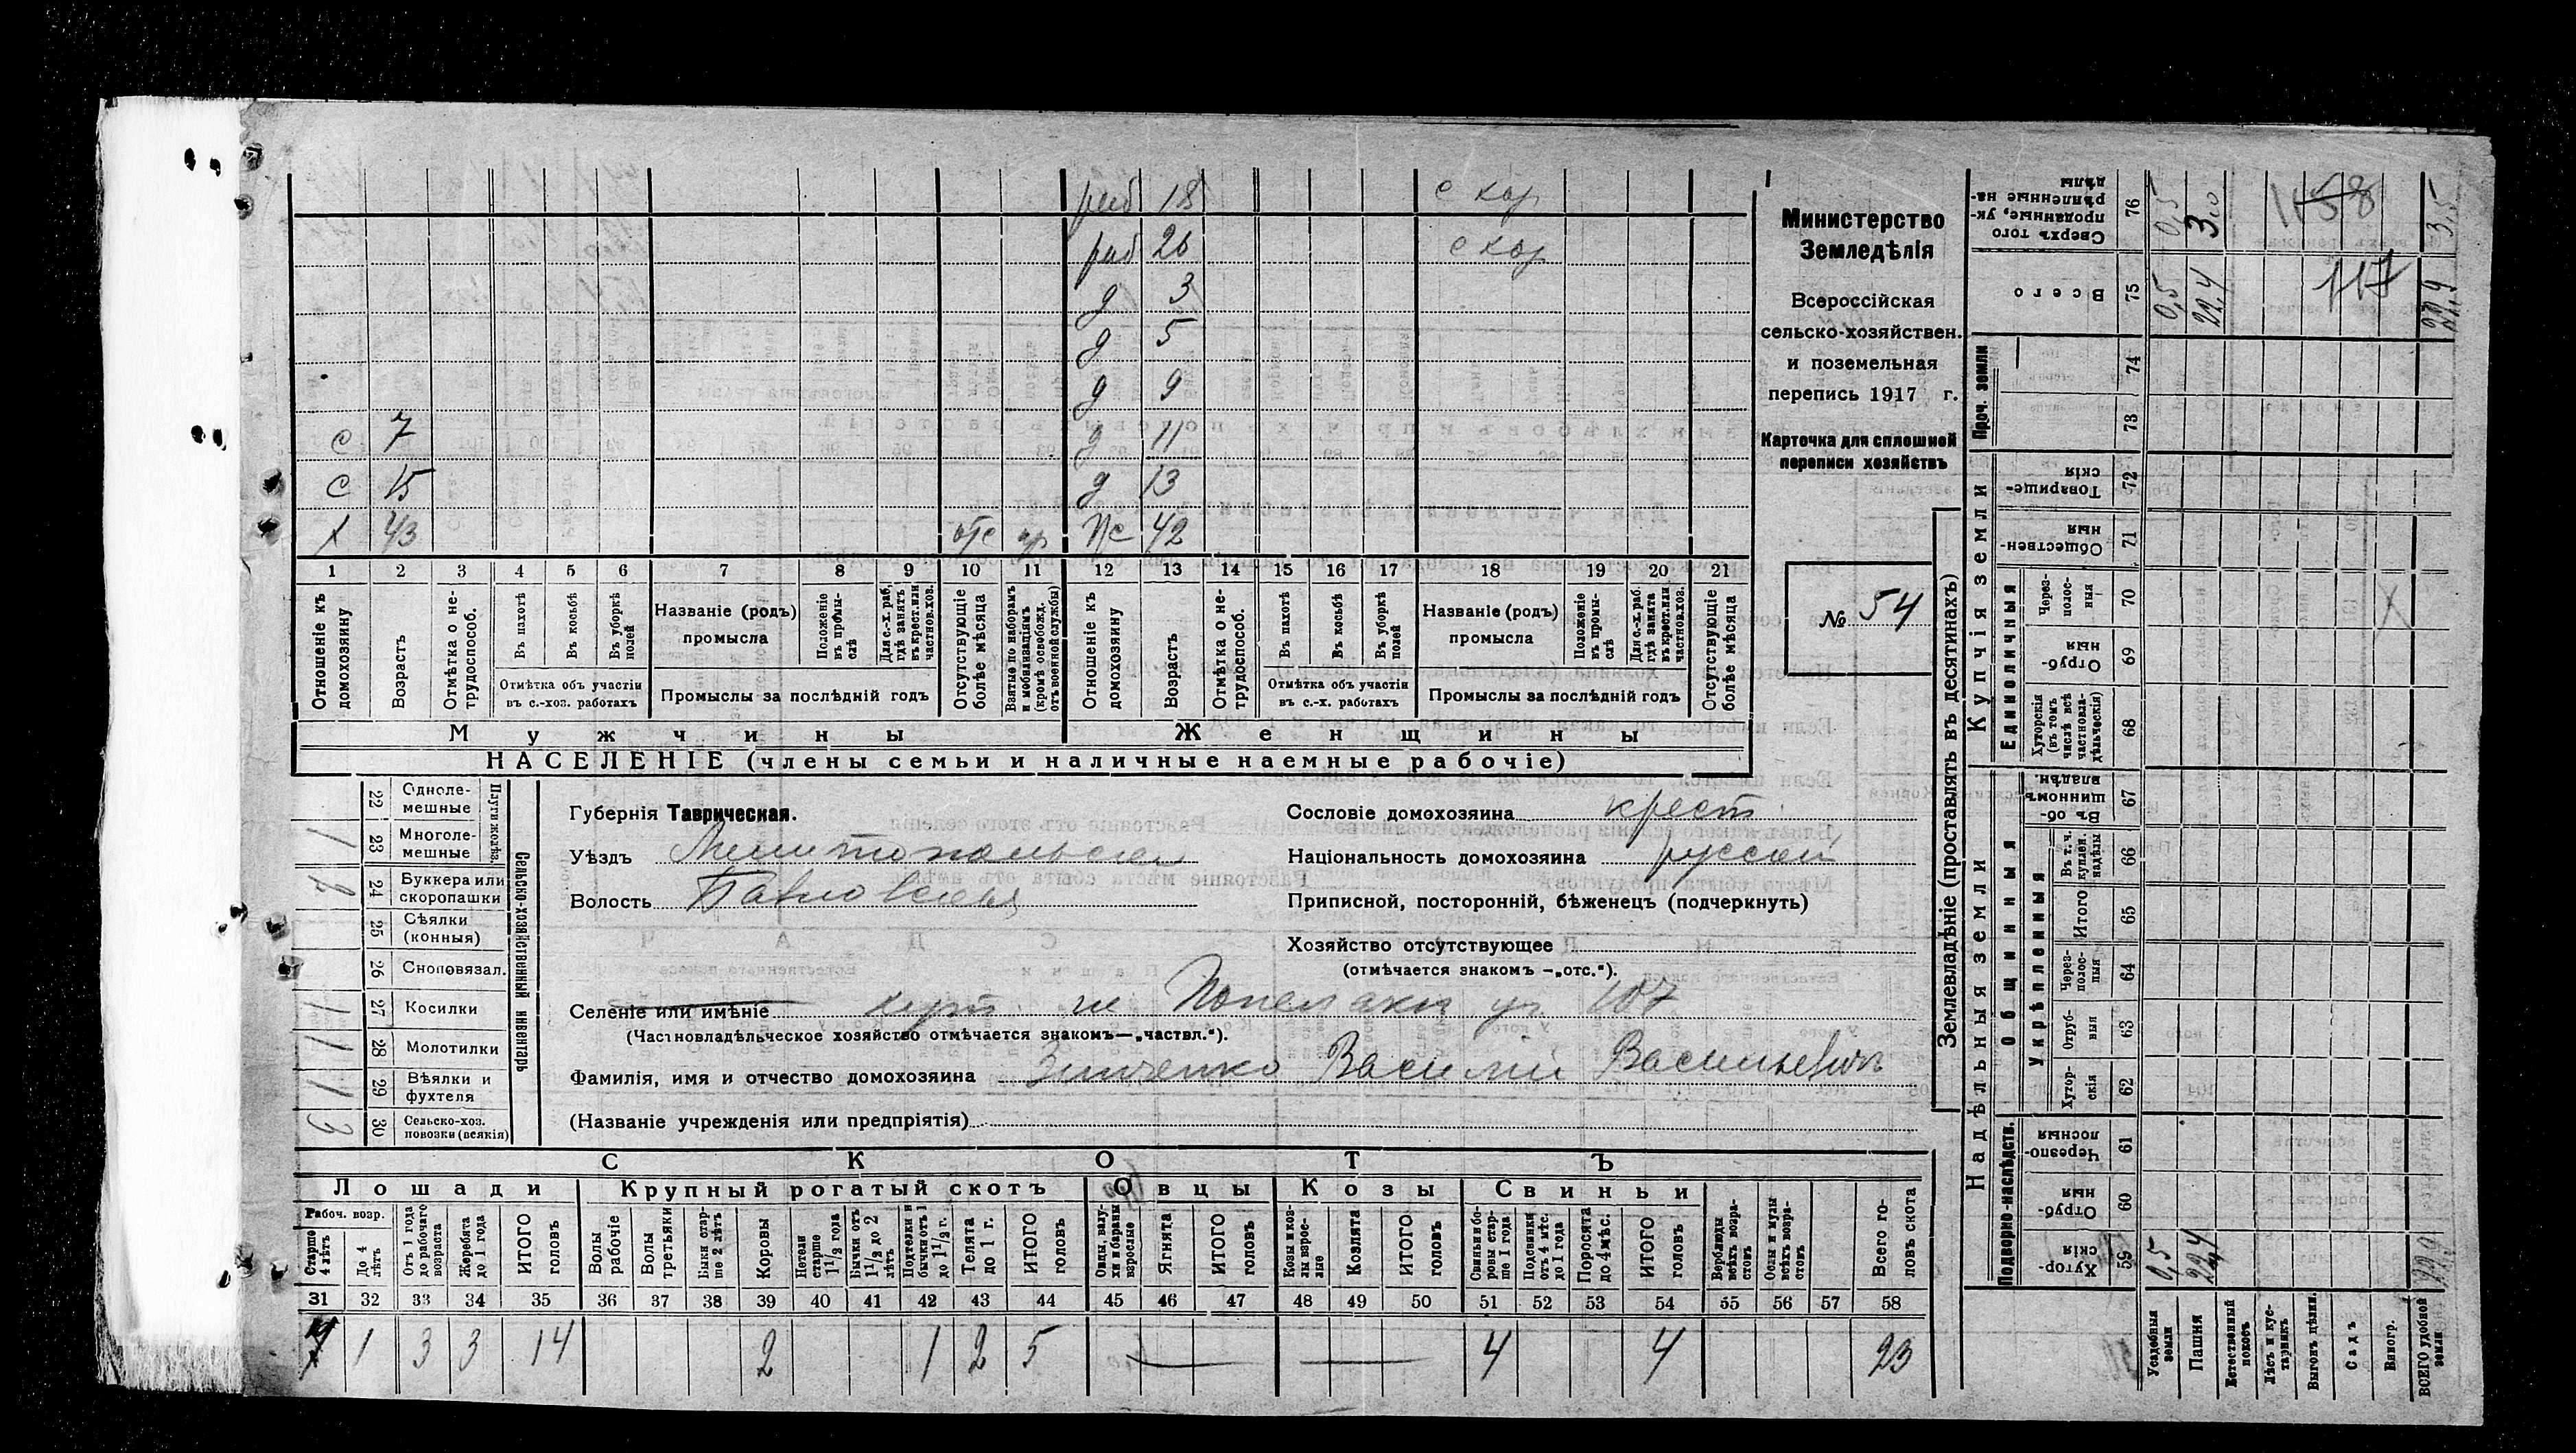 раб 18 с хоз
раб 26 с хоз
д 3
д 5
д 9
с 7 д 11
с 15 д 13
х 43 отс жс 42
1 2 3 4 5 6 7 8 9 10 11 12 13 14 15 16 17 18 19 20 21
Отношеніе къ домохозяину
Возрастъ
Отмѣтка о нетрудоспособ.
Въ пахотѣ
Въ косьбѣ
Въ уборкѣ полей
Отмѣтка объ участіи въ с.-хоз. работахъ
Названіе (родъ) промысла
Положеніе въ промыслѣ
Для с.-х. раб, гдѣ занятъ въ крест. или частнов. хоз.
Промыслы за послѣдній годъ
Отсутствующіе болѣе мѣсяца
Взятые по наборамъ и мобилизаціямъ (кромѣ освобожд. отъ военной службы)
Отношеніе къ домохозяину
Возрастъ
Отмѣтка о нетрудоспособ.
Въ пахотѣ
Въ косьбѣ
Въ уборкѣ полей
Отмѣтка объ участіи въ с.-х. работахъ
Названіе (родъ) промысла
Положеніе въ промыслѣ
Для с.-х. раб. гдѣ занята въ крест. или частнов. хоз.
Промыслы за послѣдній годъ
Отсутствующіе болѣе мѣсяца
Мужчины Женщины
НАСЕЛЕНІЕ (члены семьи и наличные наемные рабочіе)
Министерство
Земледѣлія
Всероссійская
сельско-хозяйствен.
и поземельная
перепись 1917 г.
Карточка для сплошной
переписи хозяйствъ
№ 54
Сельско-хозяйственный инвентарь
Плуги желѣз.
22 Однолемешные
23 Многолемешные 1
24 Буккера или скоропашки
25 Сѣялки (конныя)
26 Сноповязал.
27 Косилки 1
28 Молотилки 1
29 Вѣялки и фухтеля 1
30 Сельско-хоз. повозки (всякія) 3
Губернія Таврическая.
Уѣздъ
Волость Павловская
Сословіе домохозяина крест.
Національность домохозяина русскій
Приписной, посторонній, бѣженецъ (подчеркнуть)
Хозяйство отсутствующее
(отмѣчается знакомъ —„отс.“).
Селеніе или имѣніе хут. 107
(Частновладѣльческое хозяйство отмѣчается знакомъ—„частвл.“).
Фамилія, имя и отчество домохозяина Зинченко Василій Васильевичъ
(Названіе учрежденія или предпріятія)
СКОТЪ
Лошади Крупный рогатый скотъ Овцы Козы Свиньи
Рабоч. возр.
Старше 4 лѣтъ
До 4 лѣтъ
Отъ 1 года до рабочаго возраста
Жеребята до 1 года
ИТОГО головъ
Волы рабочіе
Волы третьяки
Быки старше 2 лѣтъ
Коровы
Нетели старше 1 1/2 года
Бычки отъ 1 1/2 до 2 лѣтъ
Подтелки и бычки отъ 1 до 1 1/2 г.
Телята до 1 г.
ИТОГО головъ
Овцы, валухи и бараны взрослые
Ягнята
ИТОГО головъ
Козы и козлы взрослые
Козлята
ИТОГО головъ
Свиньи и боровы старше 1 года
Подсвинки отъ 4 мѣс. до 1 года
Поросята до 4 мѣс.
ИТОГО головъ
Верблюды всѣхъ возрастовъ
Ослы и мулы всѣхъ возрастовъ
Всего головъ скота
31 32 33 34 35 36 37 38 39 40 41 42 43 44 45 46 47 48 49 50 51 52 53 54 55 56 57 58
7 1 3 3 14 2 1 2 5 4 4 23
Землевладѣніе (проставлять въ десятинахъ)
Купчія земли
Надѣльныя земли
Проч. земли
Единоличныя
Общинныя
Укрѣпленныя
Подворно-наслѣдств.
Сверхъ того проданные, укрѣпленные надѣлы 76 0,5 3,0 1158 3,5
Всего 75 0,5 22,4 117 22,9
74
73
Товарищескія 72
Общественныя 71
Черезполосныя 70
Отрубныя 69
Хуторскія (въ томъ числѣ всѣ частновладѣльческія) 68
Въ общинномъ владѣн. 67
Въ т. ч. куплен. надѣлы 66
Итого 65
Черезполосныя 64
Отрубныя 63
Хуторскія 62
Черезполосныя 61
Отрубныя 60
Хуторскія 59 0,5 22,4 22,9
Усадебныя земли
Пашня
Естественный покосъ
Лѣсъ и кустарникъ
Выгонъ цѣлин.
Садъ
Виногр.
ВСЕГО удобной земли